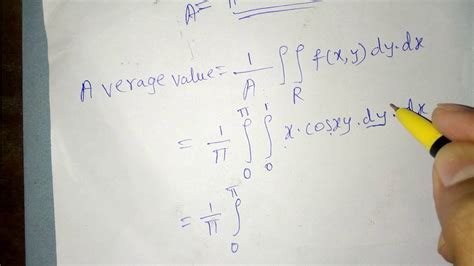 A = π
Average value = 1/A ∫∫_R f(x,y) dy·dx
= 1/π ∫_0^π ∫_0^1 x·cosxy·dy·dx
= 1/π ∫_0^π